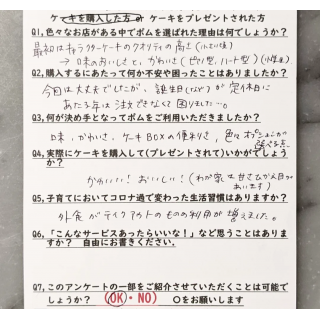 ケーキを購入した方 ケーキをプレゼントされた方
Q1,色々なお店がある中でボムを選ばれた理由は何ですか?
最初はキャラクターケーキのクオリティの高さ
→味のおいしさと、かわいさ(ピンク型、ハート型)
Q2,購入するにあたって何か不安や困ったことはありましたか?
今回は大丈夫でしたが、誕生日 が定休日に
あたる年は注文できなくて困りました…。
Q3,何が決め手となってボムをご利用いただきましたか?
味、かわいさ、ケーキBOXの便利さ、色々
Q4,実際にケーキを購入して(プレゼントされて)いかがでしょうか?
かわいい!おいしい!(わが家は甘さひかえめが
Q5,子育てにおいてコロナ過で変わった生活習慣はありますか?
外食がテイクアウトのものの利用が増えました。
Q6,「こんなサービスあったらいいな!」など思うことはありますか? 自由にお書きください.
Q7,このアンケートの一部をご紹介させていただくことは可能でしょうか? (OK・NO) ○をお願いします